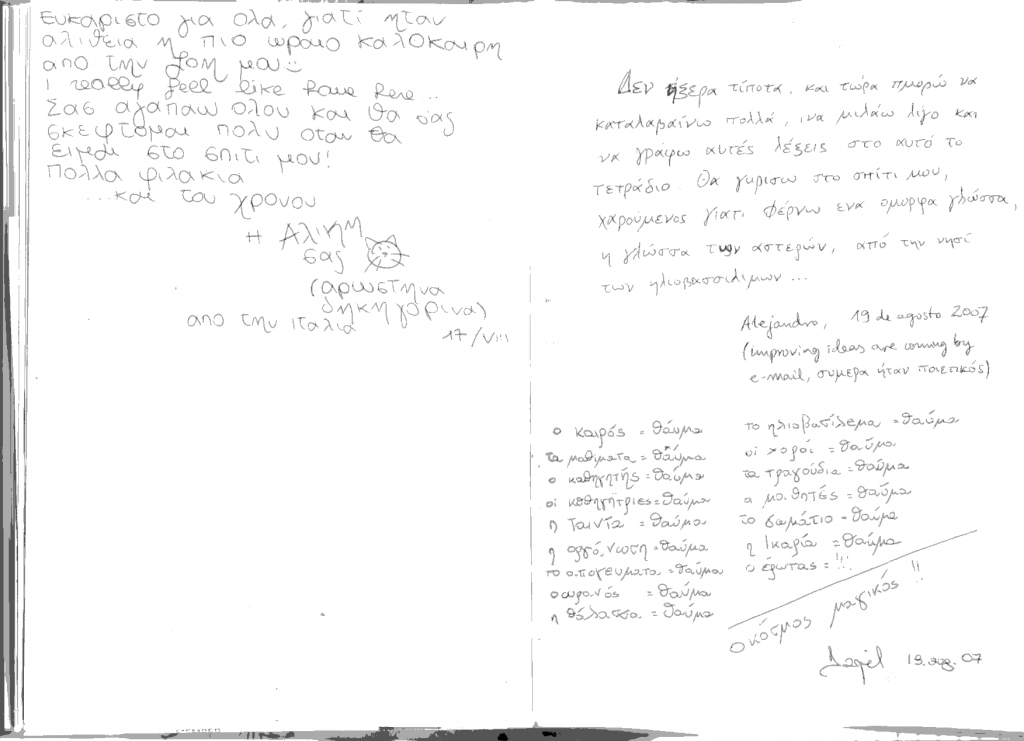 ευκαριστο για ολα, γιατί ηταν
αλιθεια η πιο ωραιο καλοκαιρη
απο την ζοη μου
I really feel like home here..
Σας αγαπαω ολου και θα σας
σκεφτομαι πολυ οταν θα
ειμαι στο σπιτι μου!
πολλα φιλακια
...και του χρονου
η Αλινη
σας
(αρωστηνα
δηκηγορινα)
απο την ιταλια
17/VIII
Δεν ήξερα τίποτα, και τώρα πμορώ να
καταλαβαίνω πολλά, ινα μιλάω λίγο και
να γράψω αυτές λέξεις στο αυτό το
τετράδιο. Θα γυρισω στο σπίτι μου,
χαρούμενος γιατι φέρνω ενα ομορφα γλώσσα,
η γλώσσα των αστερών, από την νησί
των ηλιοβασσιλιμων...
Alejandro, 19 de agosto 2007
(improving ideas are coming by
e-mail, συμερα ήταν ποιετικός)
ο καιρός = θαύμα
τα μαθιματα = θαύμα
ο καθηγητής = θαύμα
οι καθηγήτριες = θαύμα
η Ταιντα = θαύμα
η οργάνωση = θαύμα
το απογευματα = θαύμα
ο ουρανός = θαύμα
η θάλασσα = θαύμα
το ηλιοβασίλεμα = θαύμα
οι χοροί = θαύμα
τα τραγούδια = θαύμα
α μαθητές = θαύμα
το σωμάτιο = θαύμα
η Ικαρία = θαύμα
ο έρωτας = !!!
Ο κόσμος μαγικός !!
19. αυγ. 07